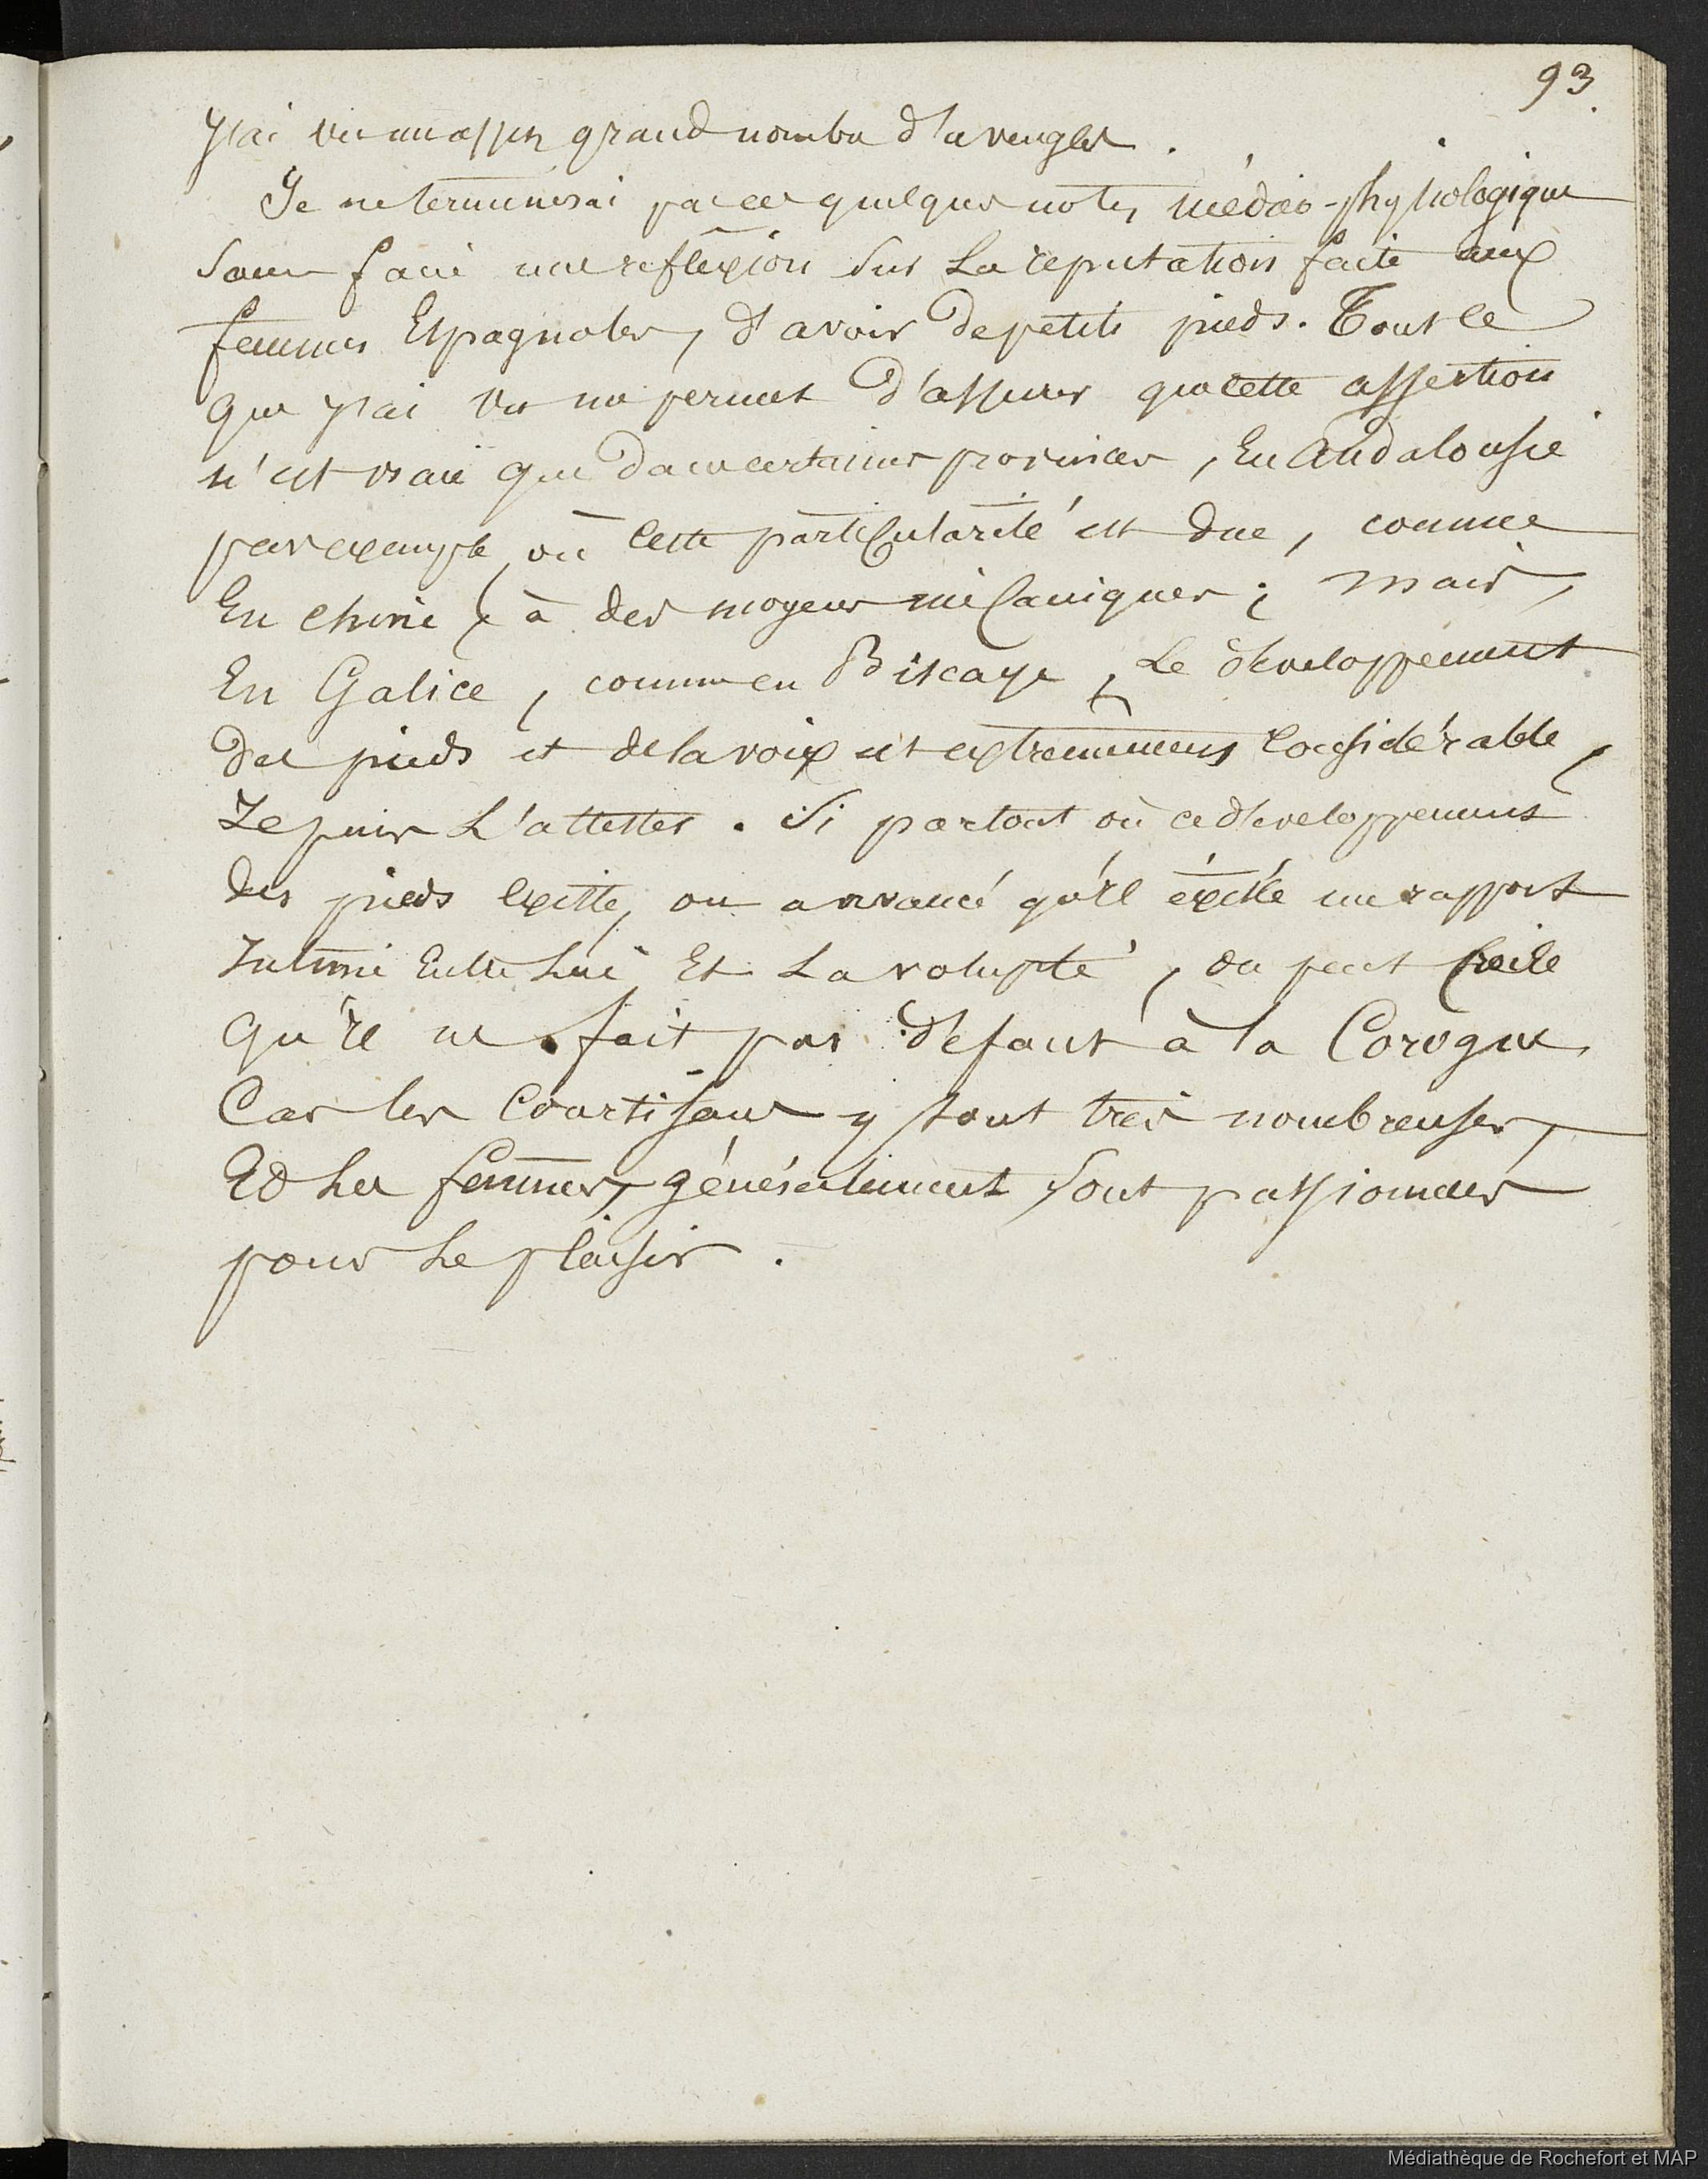 93.
j'ai vu un assez grand nombre d'aveugles.
Je ne terminerai pas ces quelques notes médico-physiologiques
sans faire une reflexion sur la réputation faite aux
femmes Espagnoles, d'avoir de petits pieds. Tout ce
que j'ai vu me permet d'assurer que cette assertion
n'est vraie que dans certaines provinces, En Andalousie
par exemple, où cette particularité est due, comme
En Chine, à des moyens mécaniques; mais,
En Galice, comme en Biscaye, Le développement
des pieds et de la voix est extremement considérable,
Je puis L'attester. Si partout où ce développement
des pieds existe, on a avancé qu'il éxiste un rapport
Intime Entre Lui Et La volupté, on peut croire
qu'il ne fait pas défaut à la Corogne,
Car les Courtisanes y sont très nombreuses,
Et Les femmes, généralement sont passionnées
pour Le plaisir.
Médiathèque de Rochefort et MAP